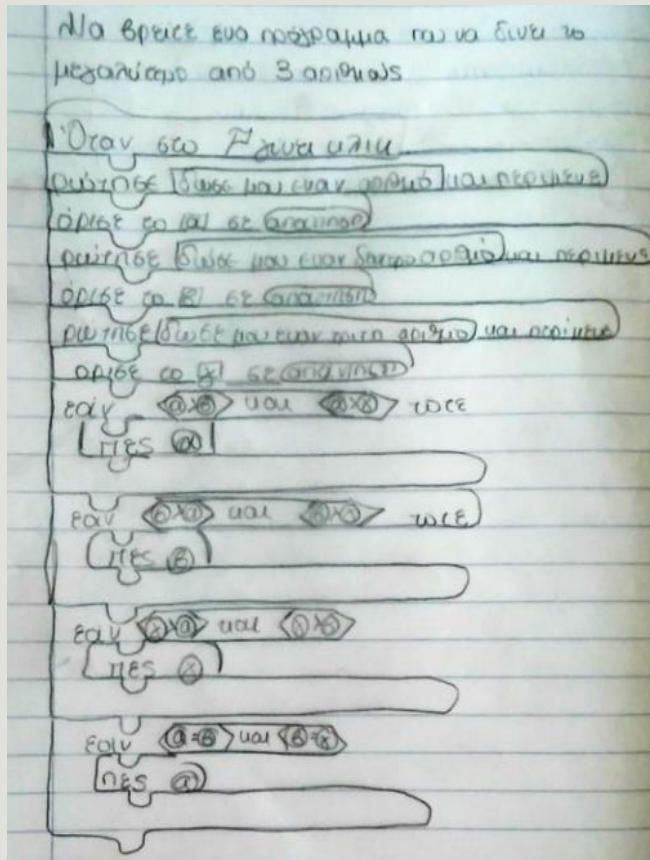 Να βρείτε ενα πρόγραμμα που να δινει το
μεγαλύτερο από 3 αριθμους
Όταν στο γινει κλικ
ρώτησε δωσε μου εναν αριθμό και περιμενε
όρισε το α σε απαντηση
ρώτησε δωσε μου εναν δευτερο αριθμό και περιμενε
όρισε το β σε απαντηση
ρωτησε δωσε μου εναν τριτο αριθμο και περίμενε
ορισε το γ σε απαντηση
εάν α>β και α>γ τοτε
πες α
εαν β>α και β>γ τοτε
πες β
εαν γ>α και γ>β
πες γ
εαν α=β και β=γ
πες α